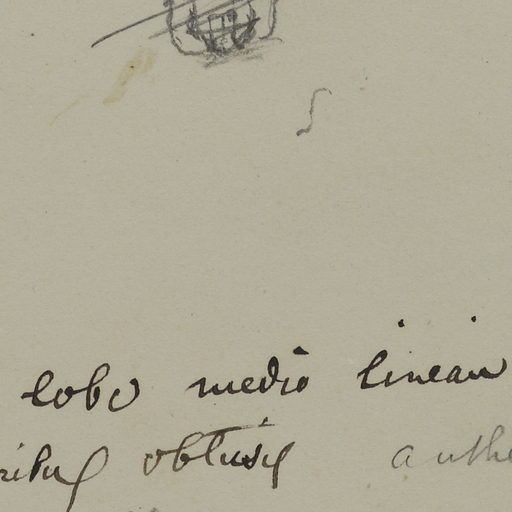 lobo medio lineari
obtusis anthe